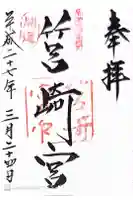 奉拝
筥崎宮
平成二十七年三月二十四日